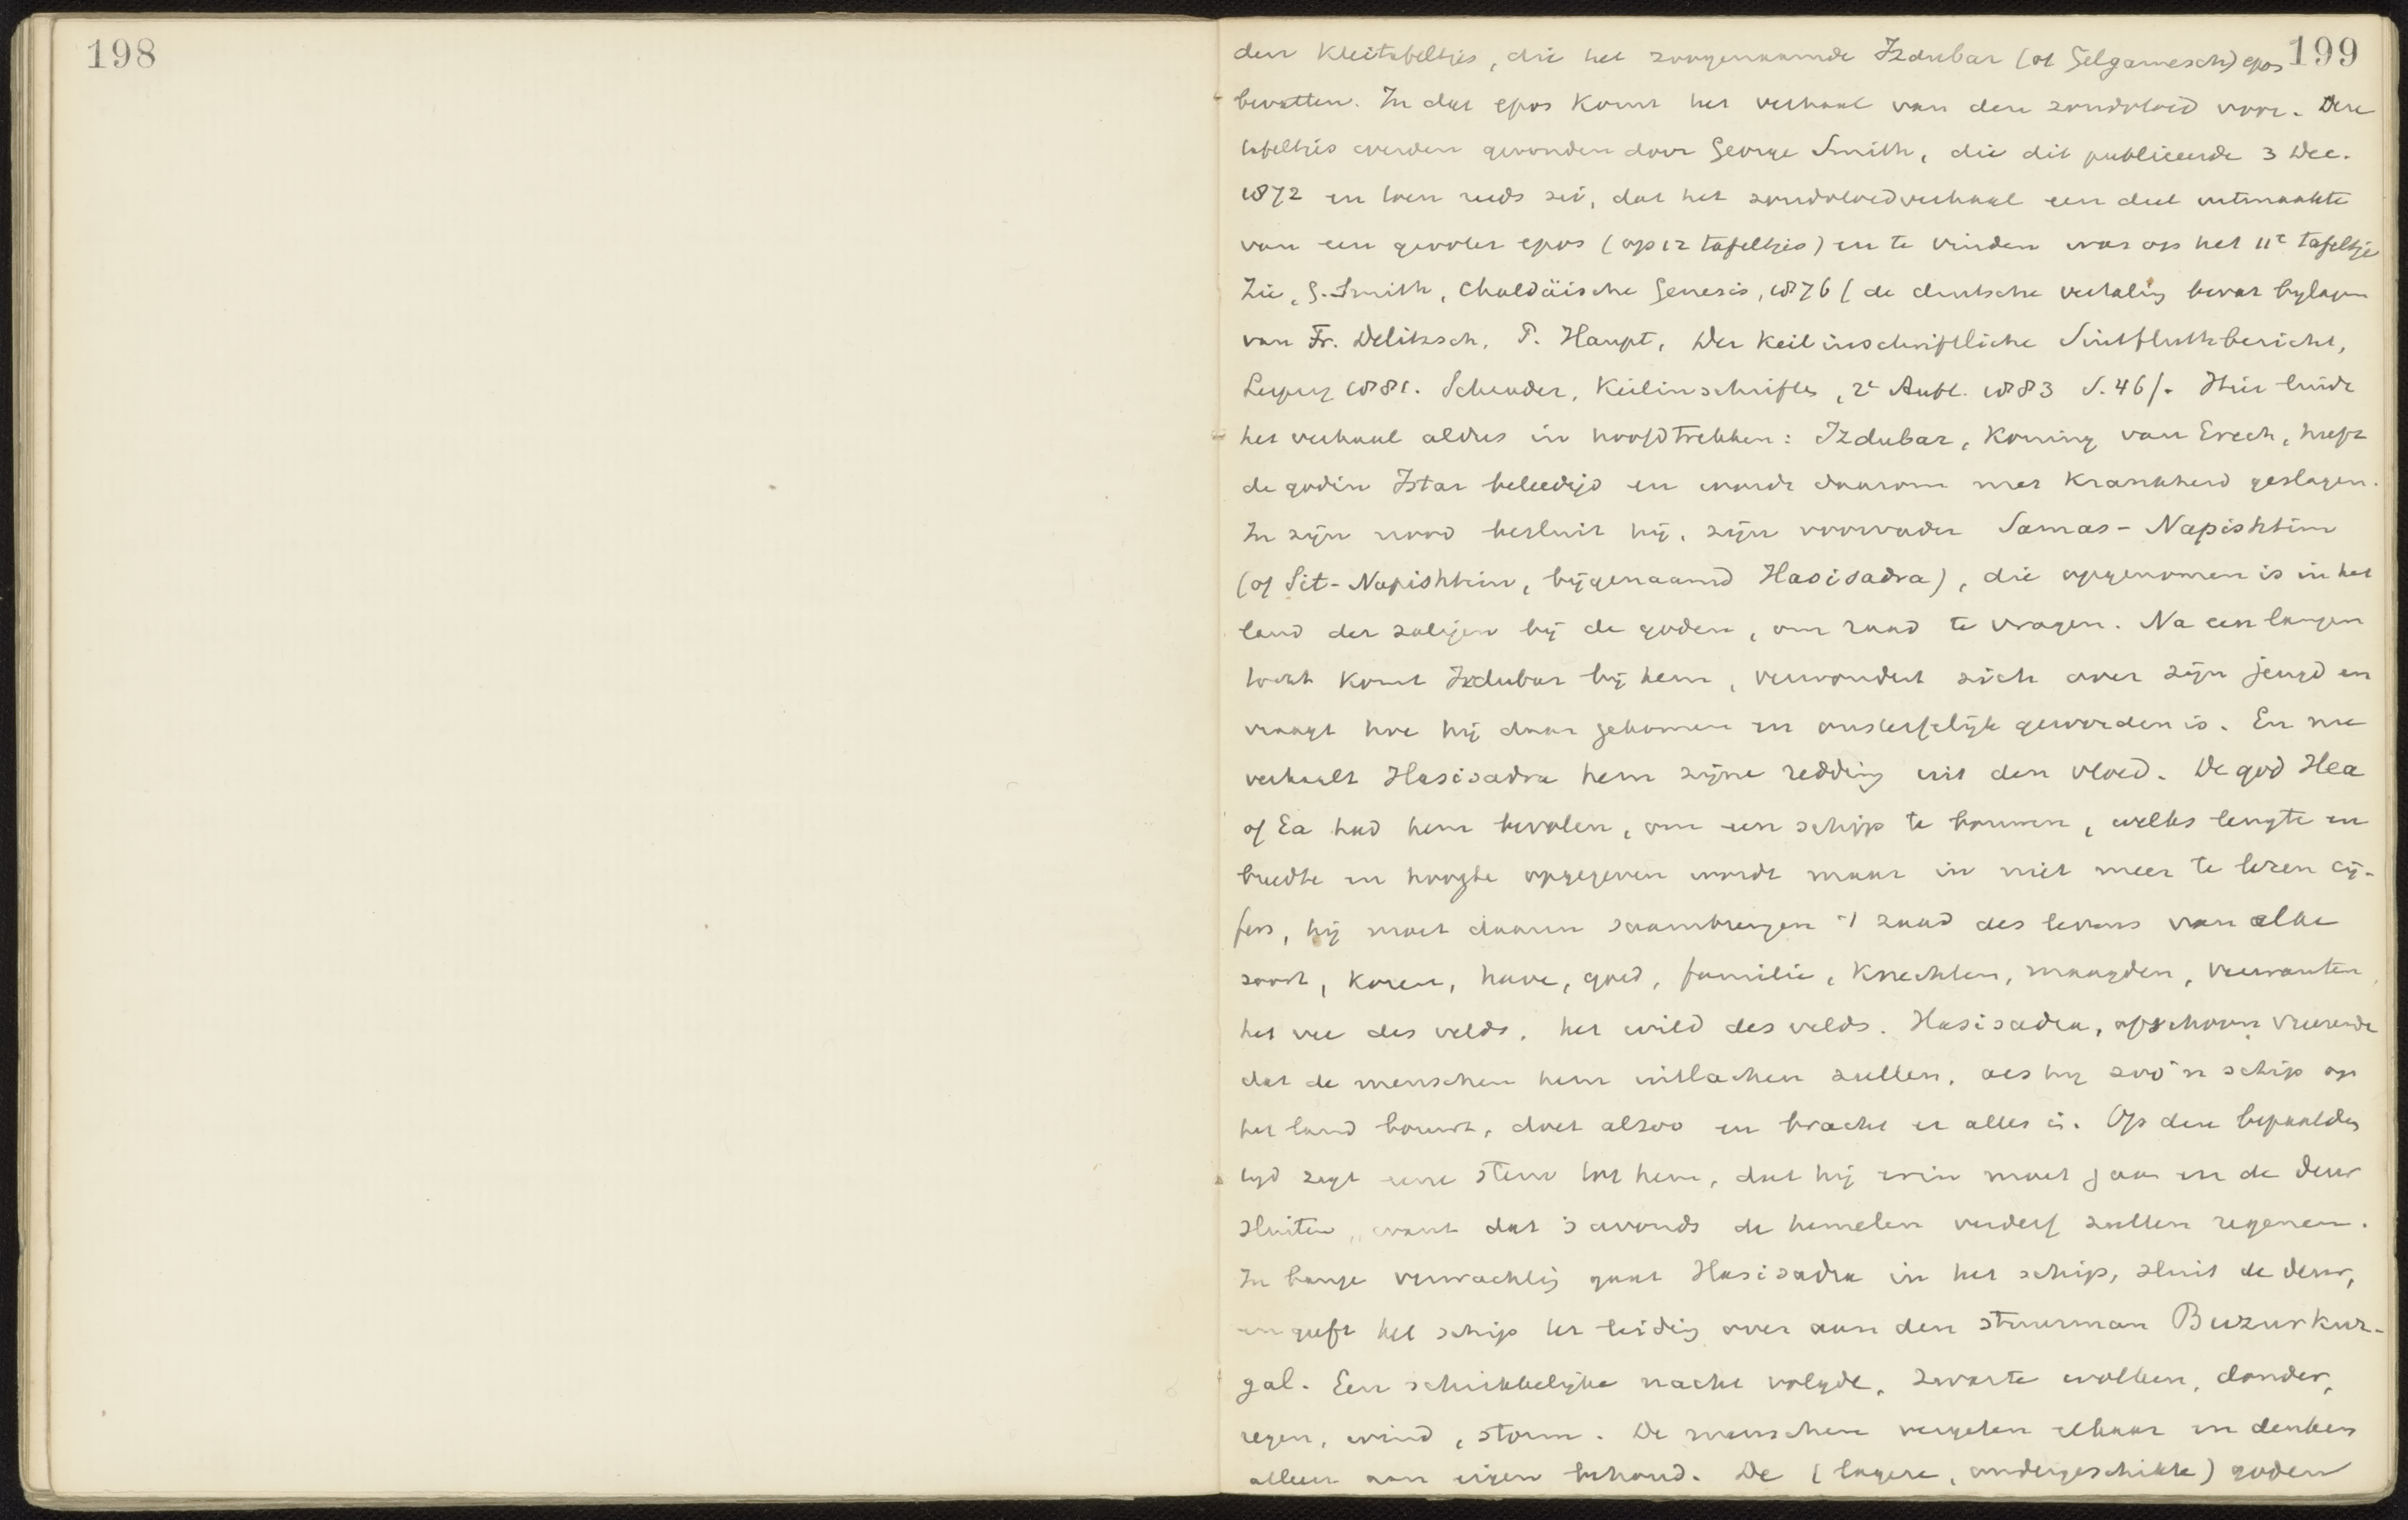 198
199
den kleitafeltjes, die het zoogenaamde Izdubar (of Gelgamesch) epos
bevatten. In dat epos komt het verhaal van den zondvloed voor. Deze
tafeltjes werden gevonden door George Smith, die dit publiceerde 3 Dec.
1872 en toen reeds zei, dat het zondvloedverhaal een deel uitmaakte
van een grooter epos (op 12 tafeltjes) en te vinden was op het 11e tafeltje
Zie, G. Smith, Chaldäische Genesis, 1876 (de deutsche vertaling bevat bylagen
van Fr. Delitzsch. P. Haupt, Der Keilinschriftliche Sintfluthbericht,
Leipzig 1881. Schrader, Keilinschriften, 2e Aufl. 1883 S. 46 f. Hier luidt
het verhaal aldus in hoofdtrekken: Izdubar, Koning van Erech, heeft
de godin Istar beleedigd en wordt daarom met krankheid geslagen.
In zijn nood besluit hij, zijn voorvader Samas-Napishtim
(of Sit-Napishtim, bijgenaamd Hasisadra), die opgenomen is in het
land der zaligen bij de goden, om raad te vragen. Na een langen
tocht komt Izdubar bij hem, verwondert zich over zijn jeugd en
vraagt hoe hij daar gekomen en onsterfelijk geworden is. En nu
verhaalt Hasisadra hem zijne redding uit den vloed. De god Hea
of Ea had hem bevolen, om een schip te bouwen, welks lengte en
breedte en hoogte opgegeven wordt maar in niet meer te lezen cij-
fers, hij moet daarin saambrengen 't zaad des levens van elke
soort, koren, have, goed, familie, knechten, maagden, verwanten,
het vee des velds, het wild des velds. Hasisadra, ofschoon vreezende
dat de menschen hem uitlachen zullen, als hij zoo'n schip op
het land bouwt, doet alzoo en bracht er alles in. Op den bepaalden
tijd zegt eene stem tot hem, dat hij erin moet gaan en de deur
sluiten, want dat 's avonds de hemelen verderf zullen regenen.
In bange verwachting gaat Hasisadra in het schip, sluit de deur,
en geeft het schip ter leiding over aan den stuurman Buzurkur-
gal. Een schrikkelijke nacht volgde, zwarte wolken, donder,
regen, wind, storm. De menschen vergeten elkaar en denken
alleen aan eigen behoud. De (lagere, ondergeschikte) goden